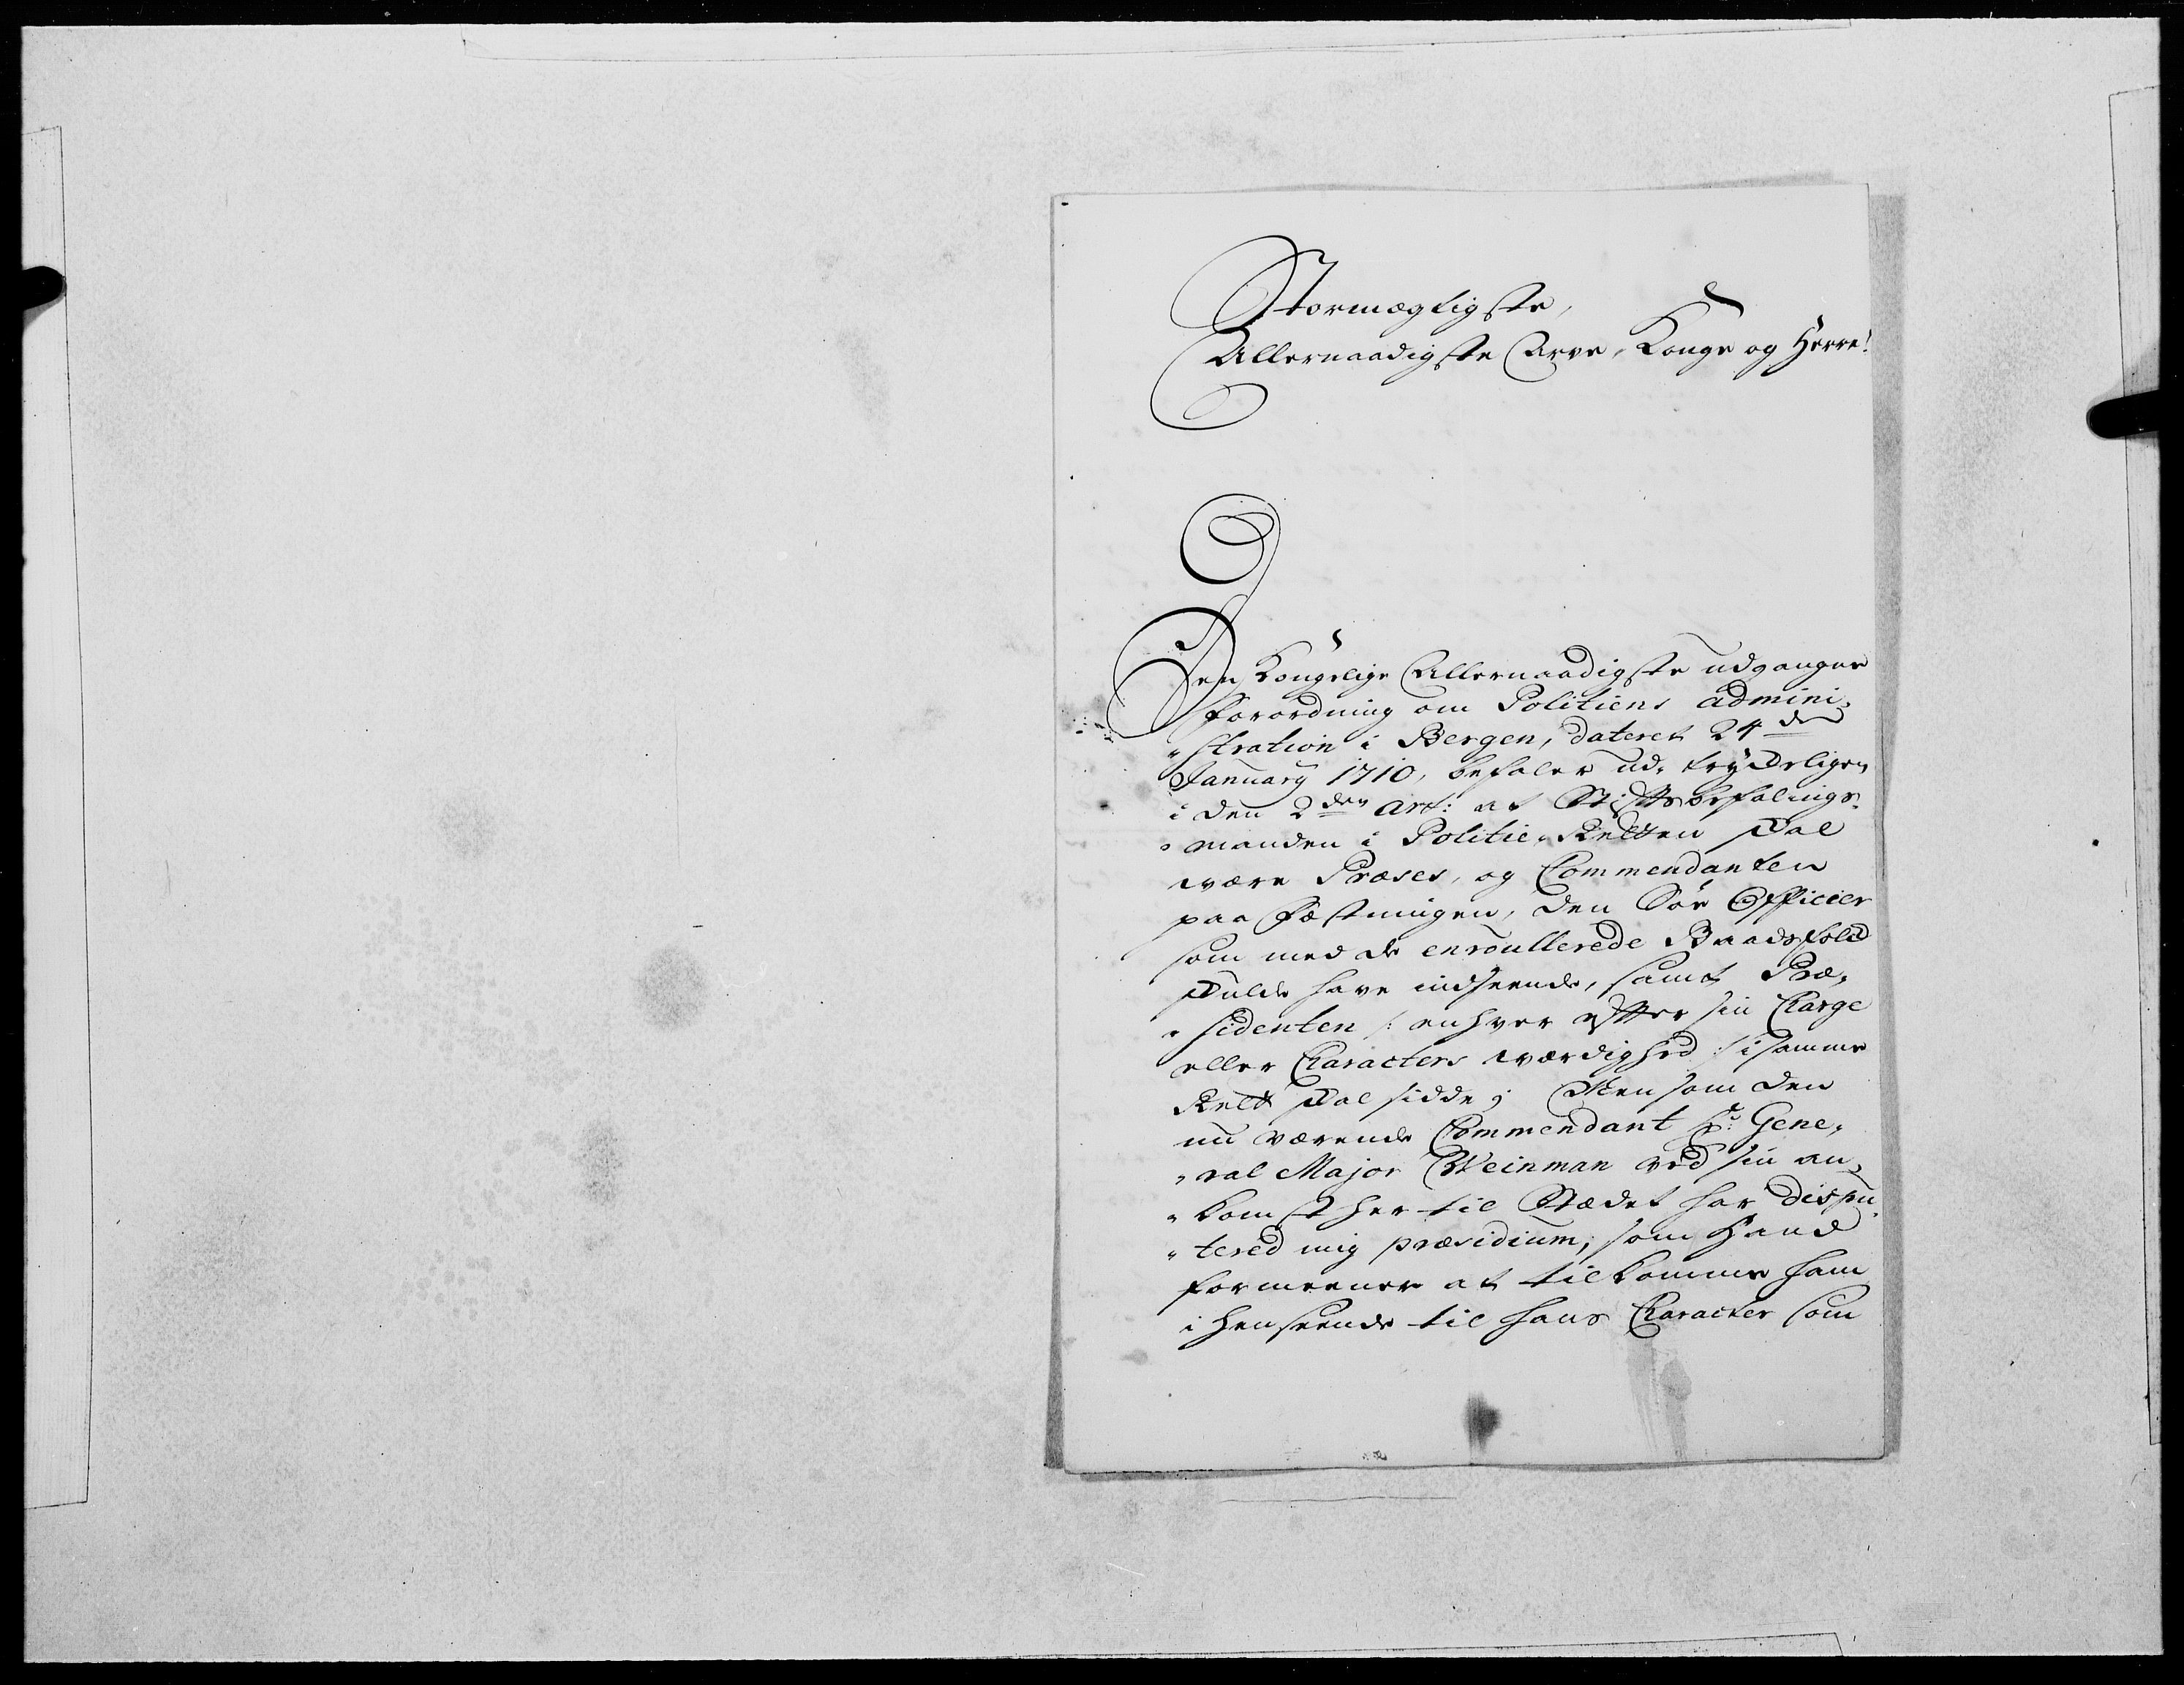 Stormægtigste,
Allernaadigste Arve, Konge og Herre!
Den Kongelige Allernaadigste udgangne
Forordning om Politiens admini-
"stration i Bergen, dateret 24 den
January 1710, befaler ud- trykkeligen
i den 2den Art: at Stiftsbefalings-
"manden i Politie-Retten skal
være Præses, og Commendanten
paa Fæstningen, den Söe Officier
som med de enroullerede Baadsfolk
skulde have indseende, samt Præ-
"sidenten /: enhver efter sin Charge
eller Characters værdighed :/ i samme
Rett skal sidde; Men som den
nu værende Commendant Hr: Gene-
"ral Major Weinman ved sin an-
"komst her til Stædet har dispu-
"tered mig præsidium, som Hand
formeener at tilkomme ham
i henseende til hans Character som